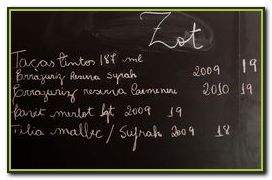 Zot
Taças tintos 187 ml
Errazuriz Reserva Syrah 2009 19
Errazuriz reserva Carmenere 2010 19
merlot 2009 19
malbec / Syrah 2009 18